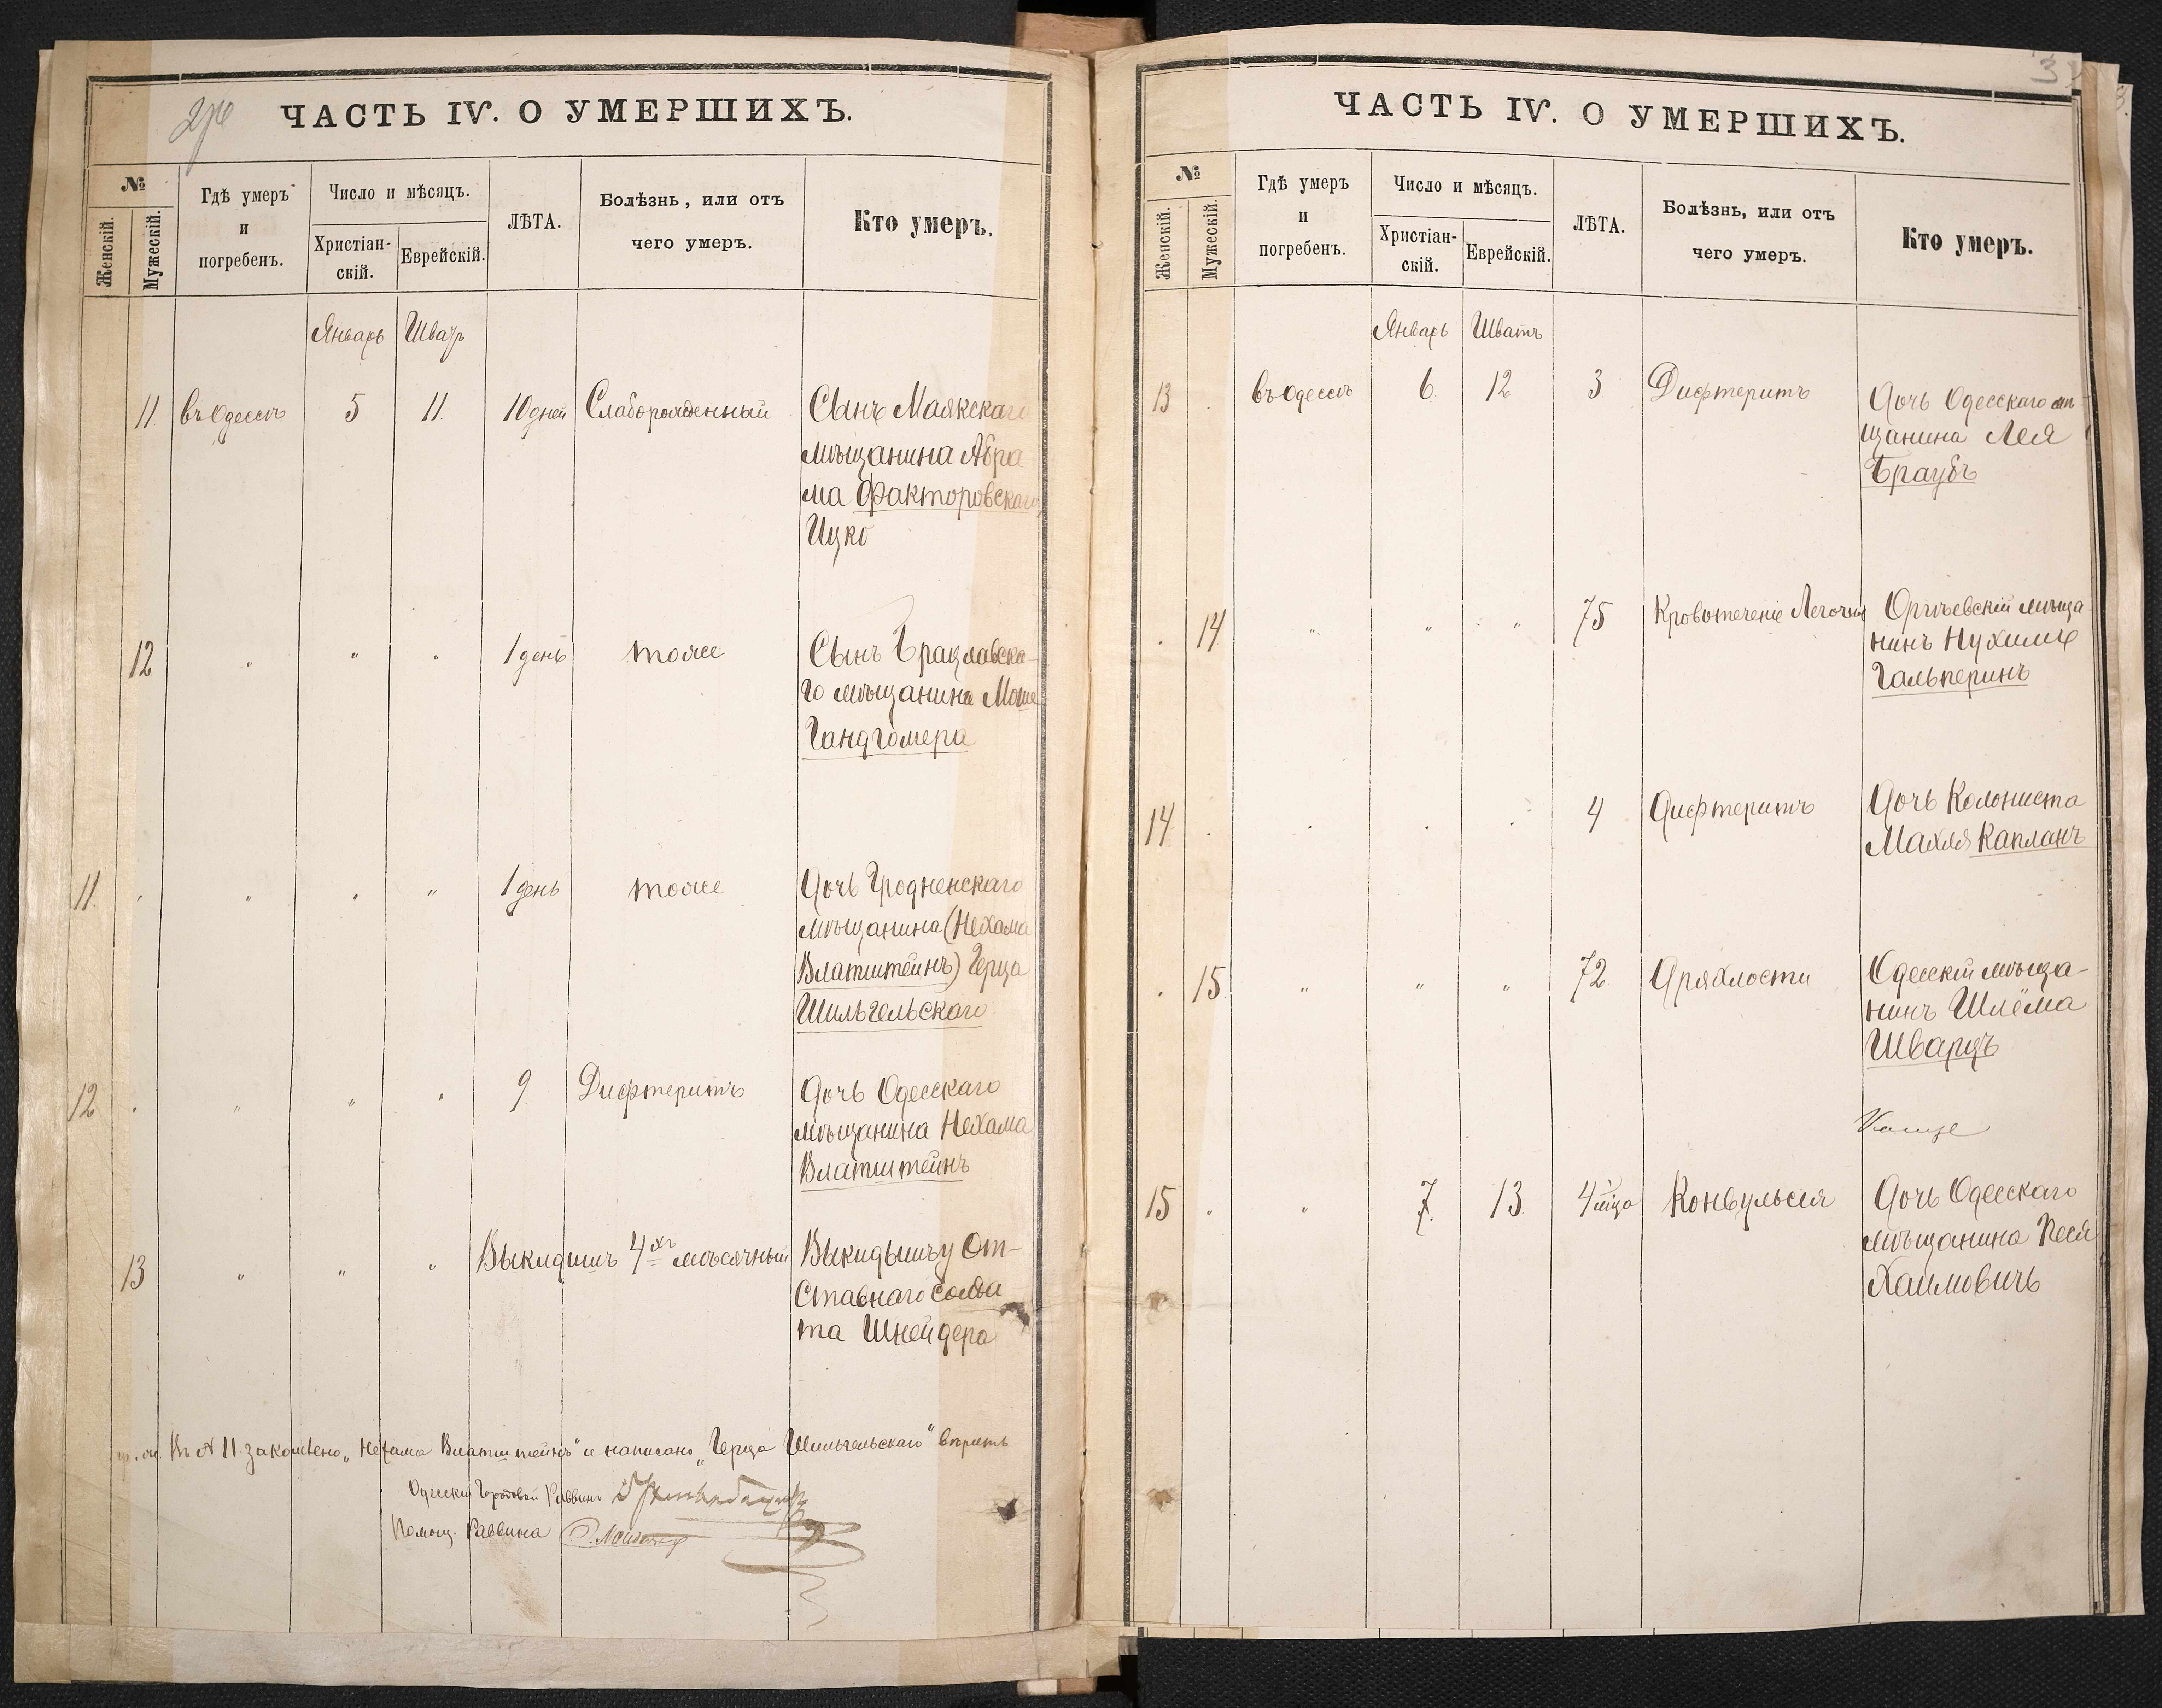 ЧАСТЬ IV. О УМЕРШИХЪ.
№
Женскій.
Мужескій.
Гдѣ умеръ
и
погребенъ.
Число и мѣсяцъ.
Христіан-
скій.
Еврейскій.
ЛѢТА.
Болѣзнь, или отъ
чего умеръ.
Кто умеръ.
Январь Шватъ
11. въ Одессѣ 5 11. 10 дней Слаборожденный Сынъ Маякскаго
мѣщанина Абра
ма Факторовскаго
Ицко
12 " " " 1 день тоже Сынъ Брацлавска-
го мѣщанина Моше
Гандгомера
11. " " " " 1 день тоже Дочь Гродненскаго
мѣщанина (Нехама
Влатштейнъ) Герца
Шильгельскаго
12 " " " " 9. Дифтеритъ Дочь Одесскаго
мѣщанина Нехама
Влатштейнъ
13 " " " Выкидышъ 4хъ мѣсячный Выкидышъ у От-
ставнаго Солда
та Шнейдера
Въ № 11 заключено „Нехама Влатштейнъ" и написано „Герца Шильгельскаго" вѣрить
Одесскій Городовой Раввинъ
Помощ. Раввина
ЧАСТЬ IV. О УМЕРШИХЪ.
№
Женскій.
Мужескій.
Гдѣ умеръ
и
погребенъ.
Число и мѣсяцъ.
Христіан-
скій.
Еврейскій.
ЛѢТА.
Болѣзнь, или отъ
чего умеръ.
Кто умеръ.
Январь Шватъ
13 въ Одессѣ 6. 12 3 Дифтеритъ Дочь Одесскаго мѣ-
щанина Лея
Браубъ
14 " " " 75 Кровотеченіе Легочн. Оргѣевскій мѣща
нинъ Нухимъ
Гальперинъ
14 " " " " 4 Дифтеритъ Дочь Колониста
Махля Капланъ
15 " " " 72 Дряхлости Одесскій мѣща-
нинъ Шлёма
Шварцъ
15 " " 7. 13. 4 м-ца Конвульсія Дочь Одесскаго
мѣщанина Песя
Хаимовичъ